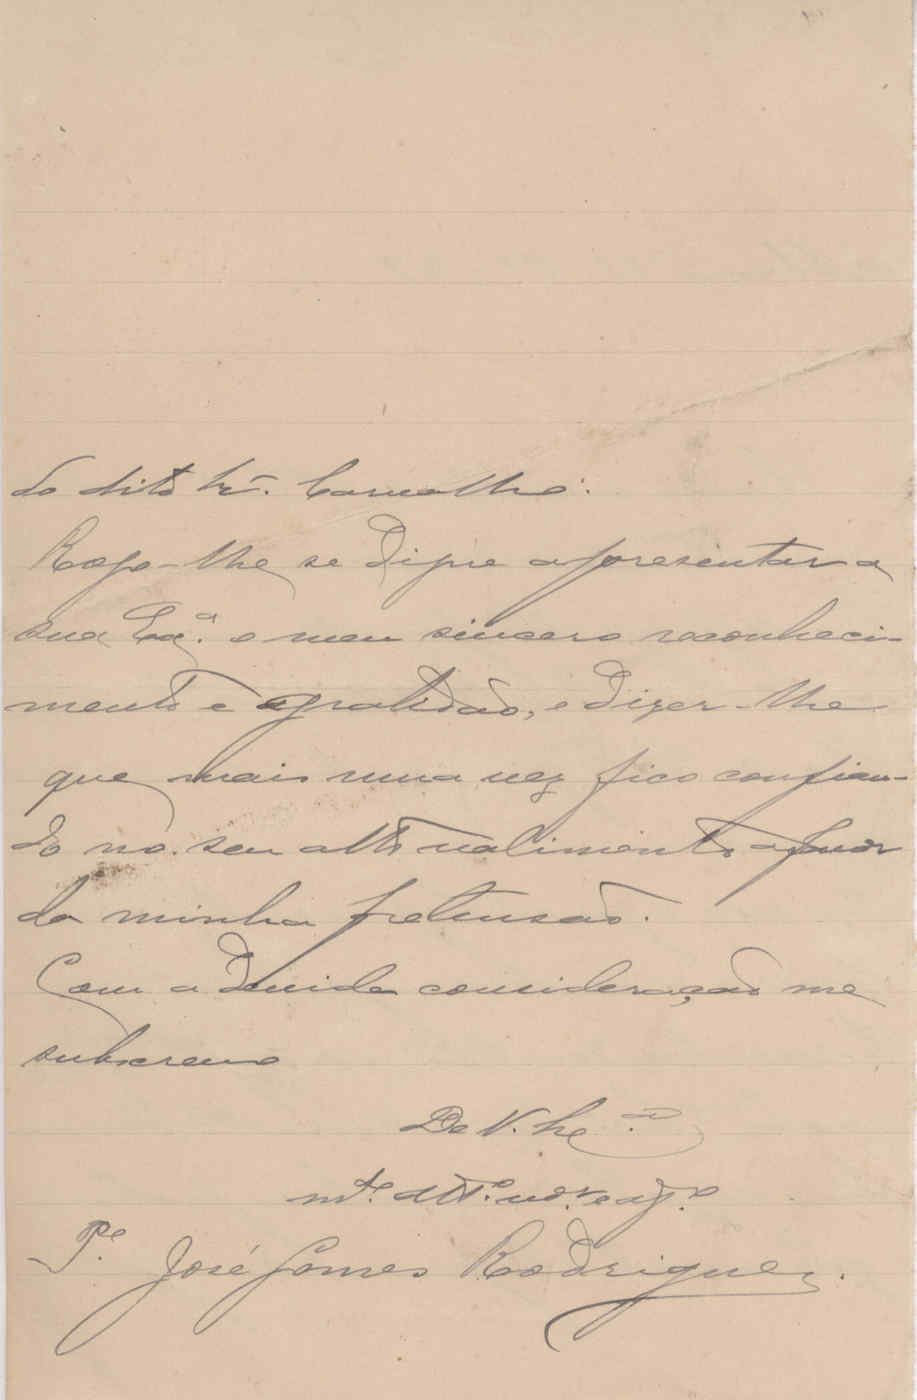 do dito Sr. Carvalho.
Rogo-lhe se digne apresentar a
sua Exª. o meu sincero reconheci-
mento e gratidão, e dizer-lhe
que mais uma vez fico confian-
do no seu alto valimento a favor
da minha pretensão.
Com a devida consideração me
subscrevo
De V. Sª.
mtº. attº. vdor. e
Pe. José Gomes Rodrigues.